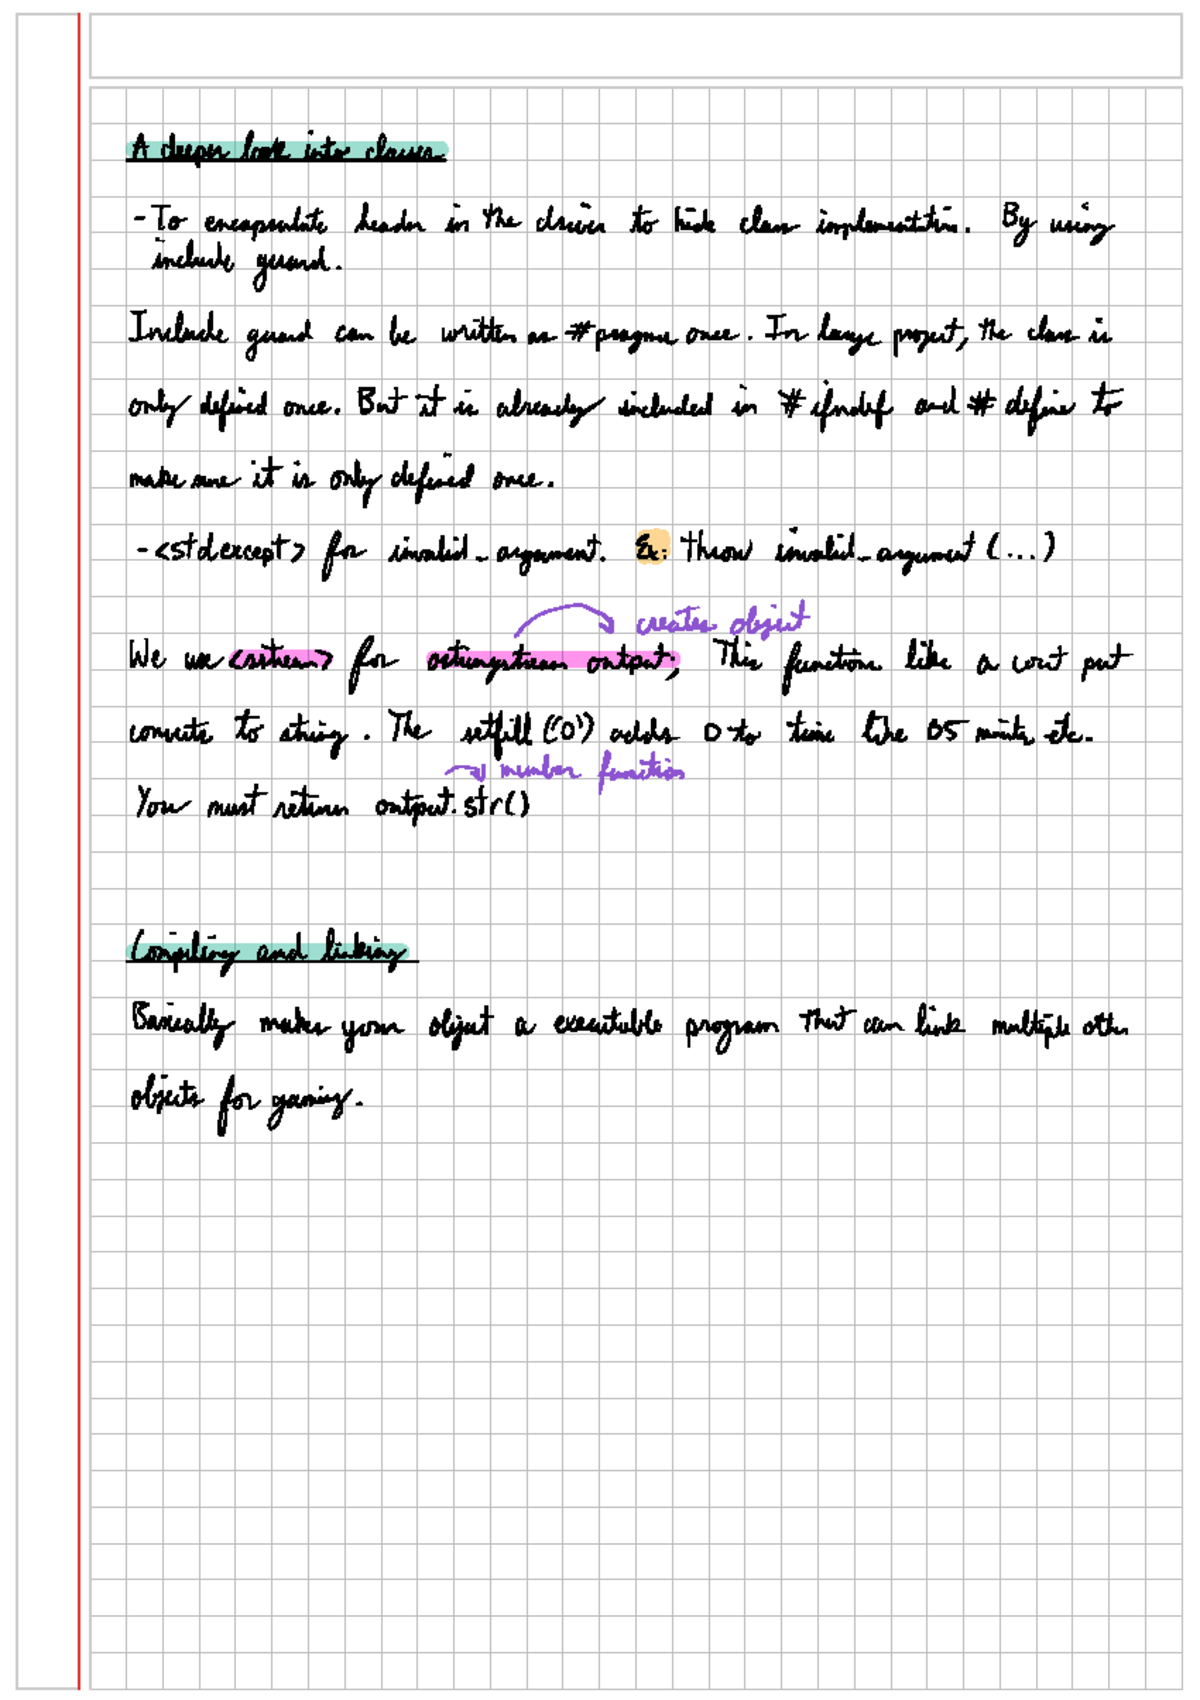 A deeper look into classes
- To encapsulate header in the driver to hide class implementation. By using
include guard.
Include guard can be written as #pragma once. In large project, the class is
only defined once. But it is already included in #ifndef and #define to
make sure it is only defined once.
- <stdexcept> for invalid_argument. Ex: throw invalid_argument (...)
creates object
We use <sstream> for ostringstream output; This function like a cout put
converts to string. The setfill ('0') adds 0 to time like 05 minutes etc.
member function
You must return output.str()
Compiling and linking
Basically makes your object a executable program that can link multiple other
objects for gaming.